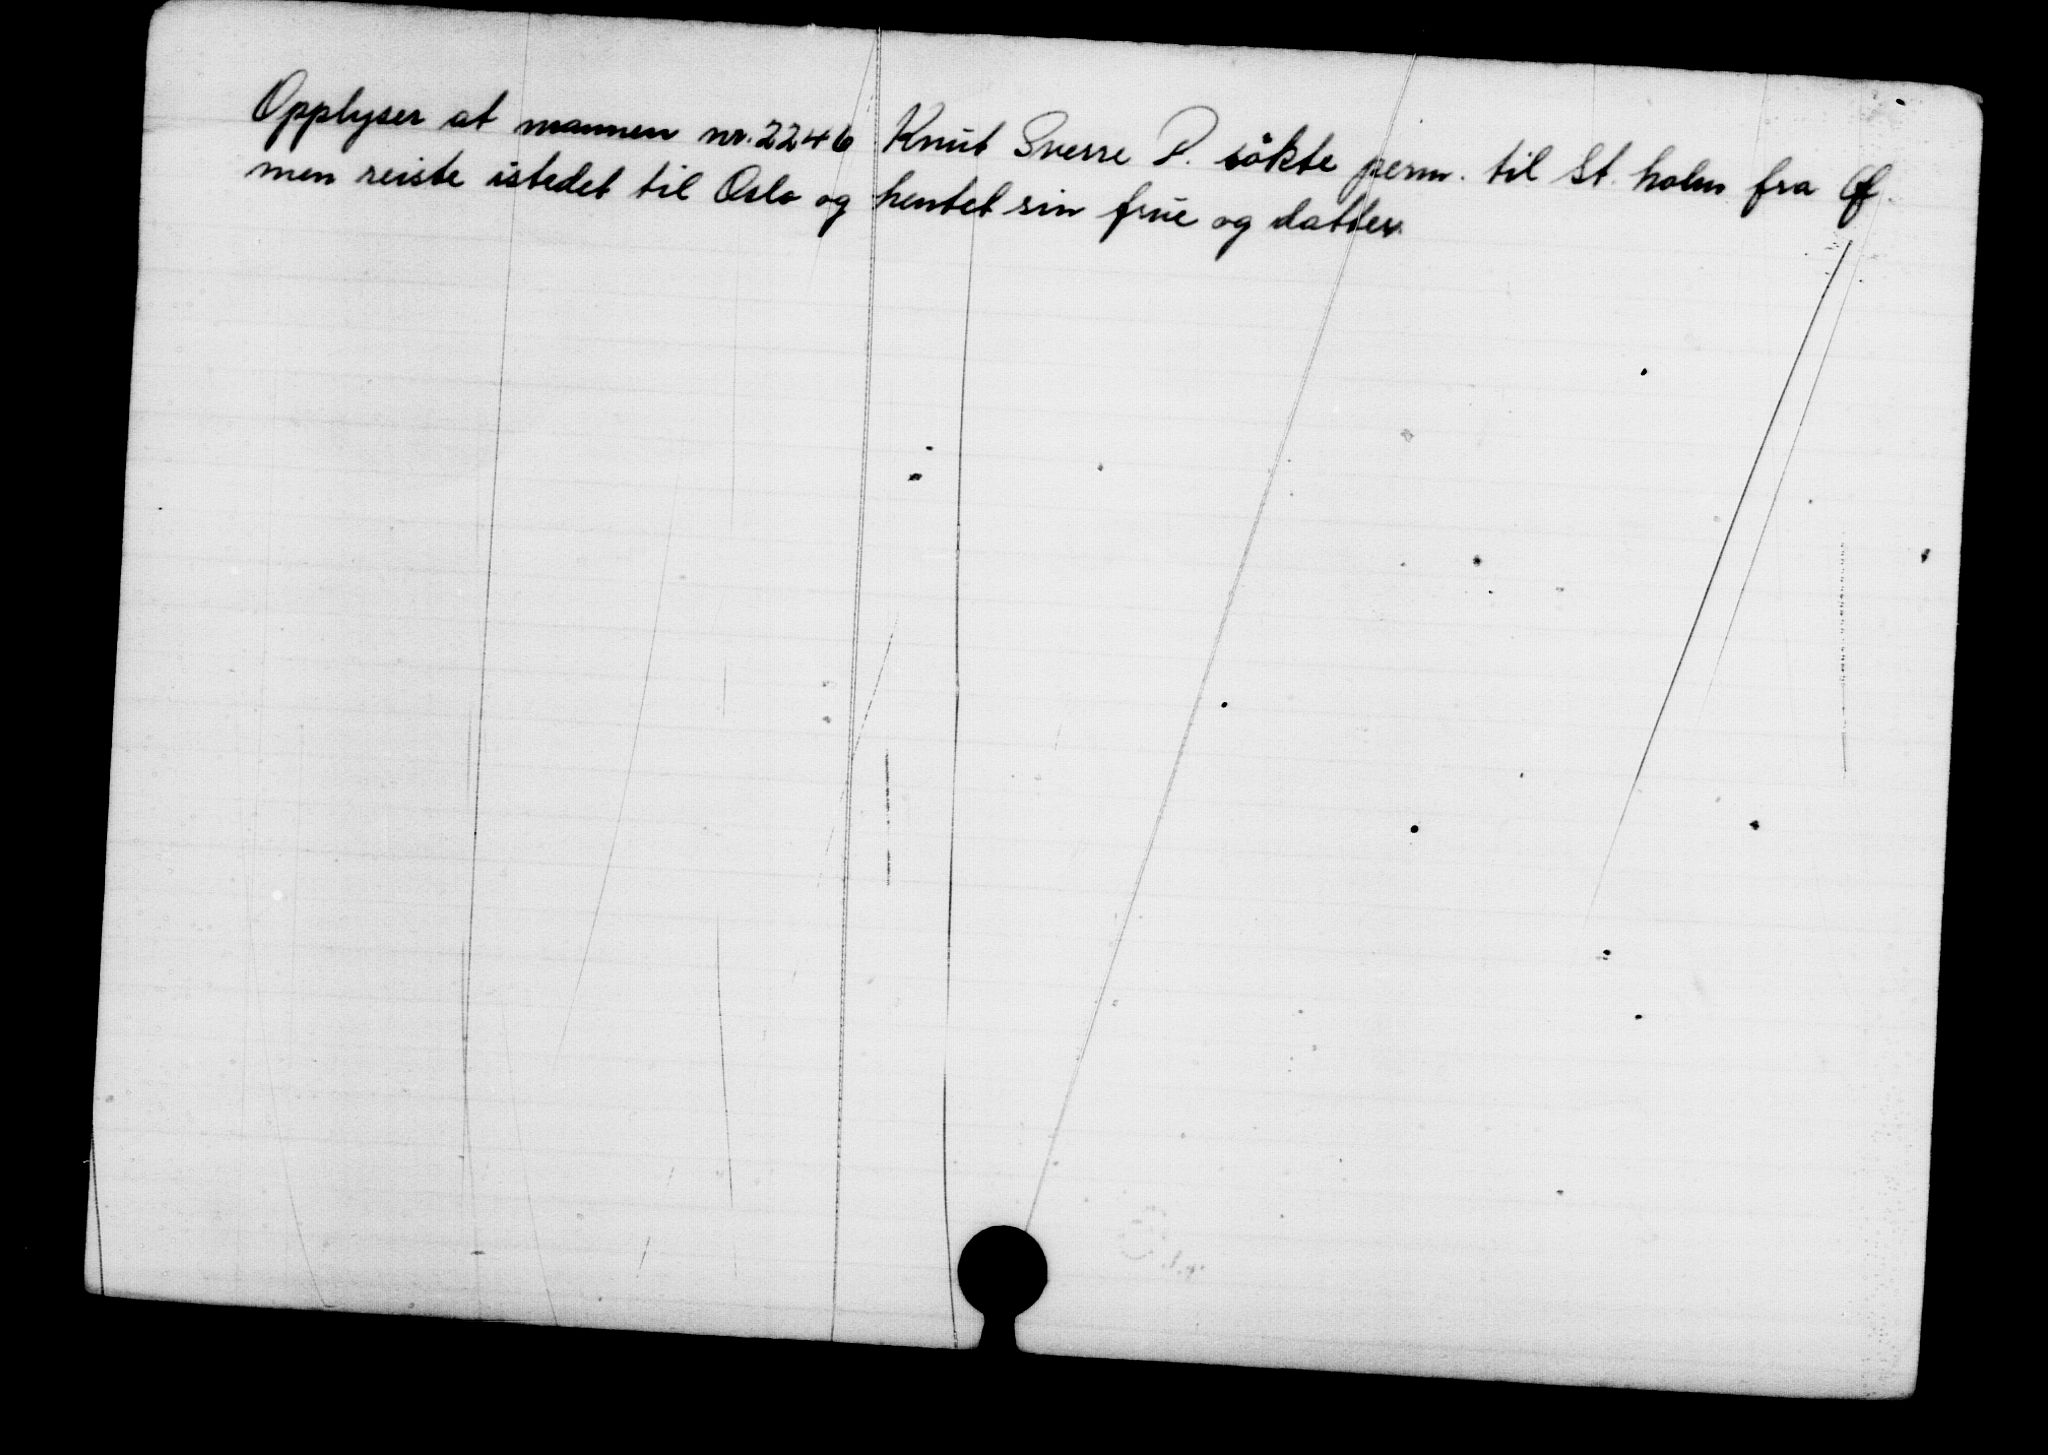 Opplyser at mannen nr. 2246 Knut Sverre P. sökte perm. til St. holm fra
men reiste istedet til Oslo og hentet sin frue og datter.